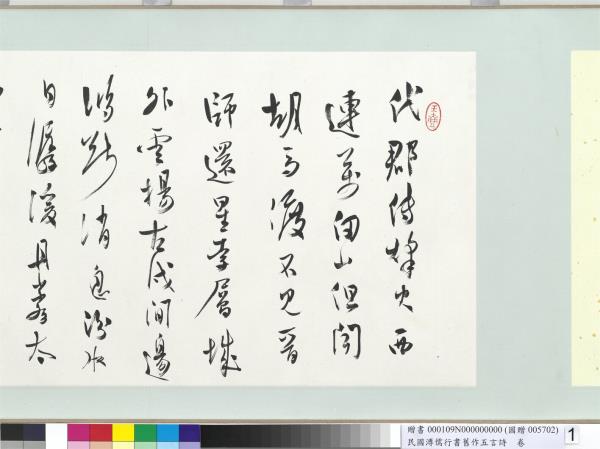 代郡傳烽火西
連萬山但聞
胡馬渡不見晉
師還星孛層城
外雲揚古戍間邊
鴻斷消息汾水
日潺湲丹壑太
贈書 000109N000000000 (國贈 005702)
民國溥儒行書舊作五言詩 卷
1